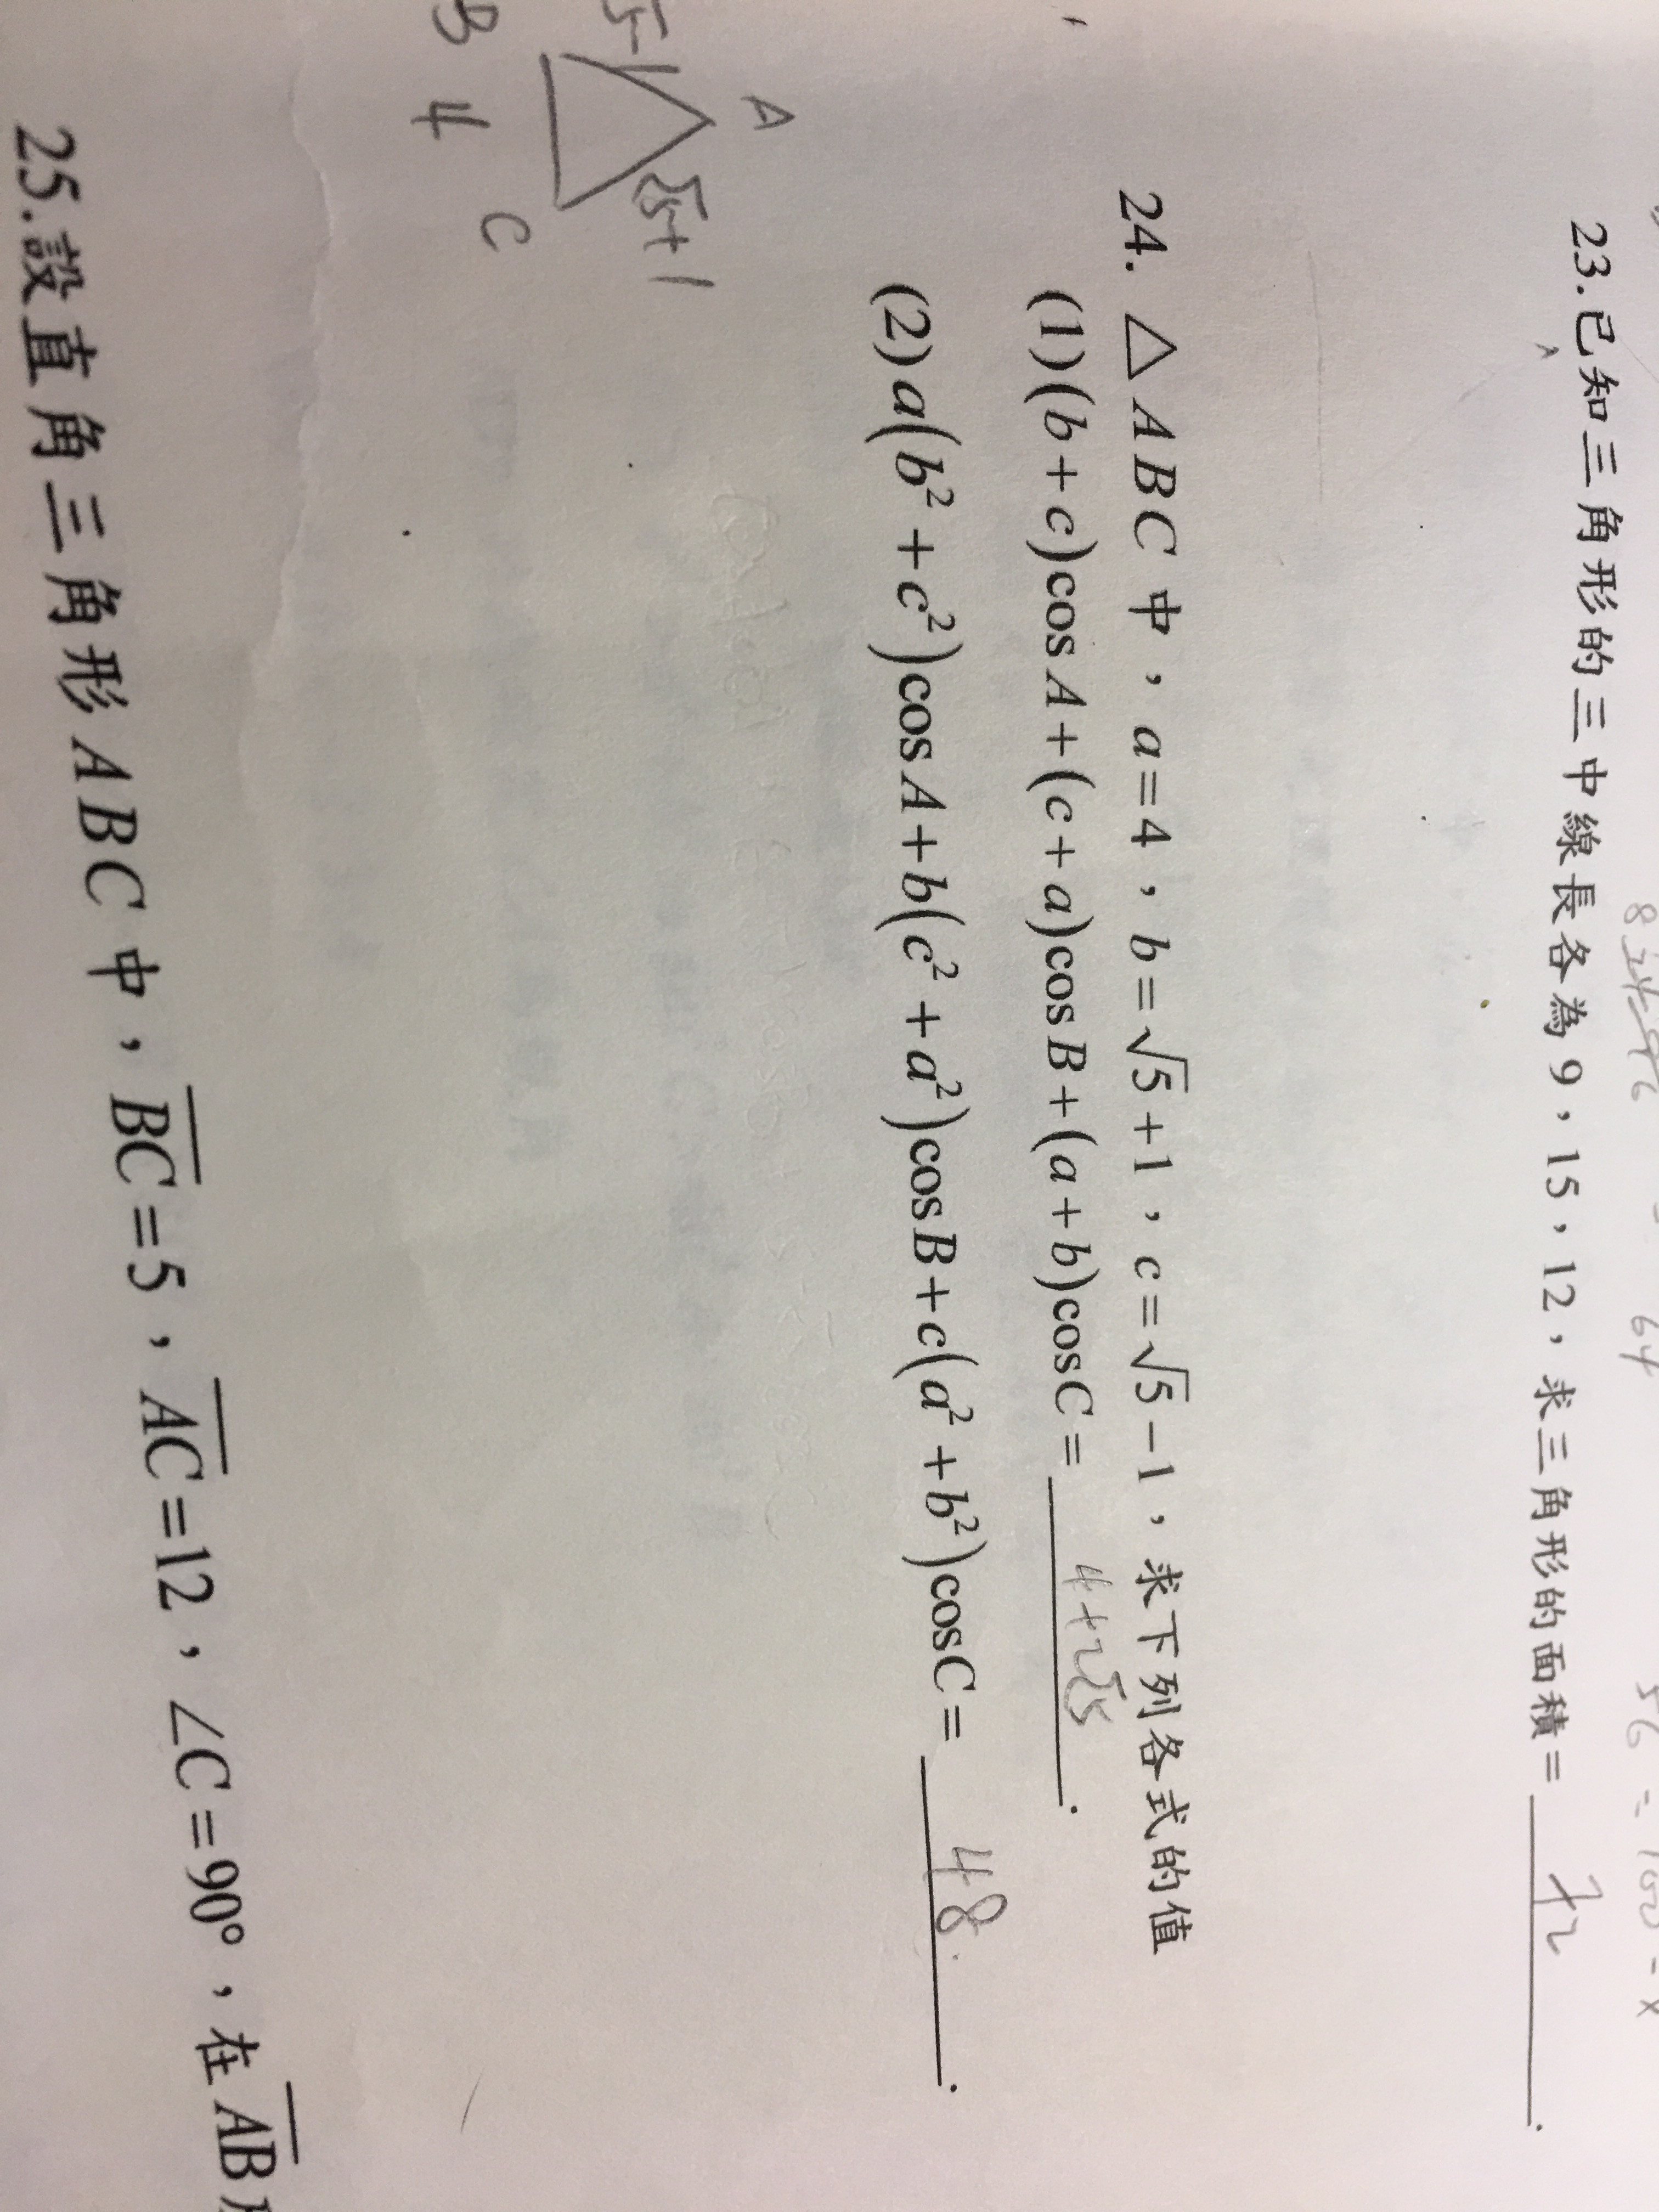 8
64
56 = 100 - x
23.已知三角形的三中線長各為9，15，12，求三角形的面積= 72 .
A
24. △ABC中，a=4，b=√5+1，c=√5−1，求下列各式的值
(1)(b+c)cosA+(c+a)cosB+(a+b)cosC= 4+2√5 .
(2)a(b²+c²)cosA+b(c²+a²)cosB+c(a²+b²)cosC= 48 .
A
√5-1
√5+1
B 4 C
25.設直角三角形ABC中，B̅C̅=5，A̅C̅=12，∠C=90°，在A̅B̅